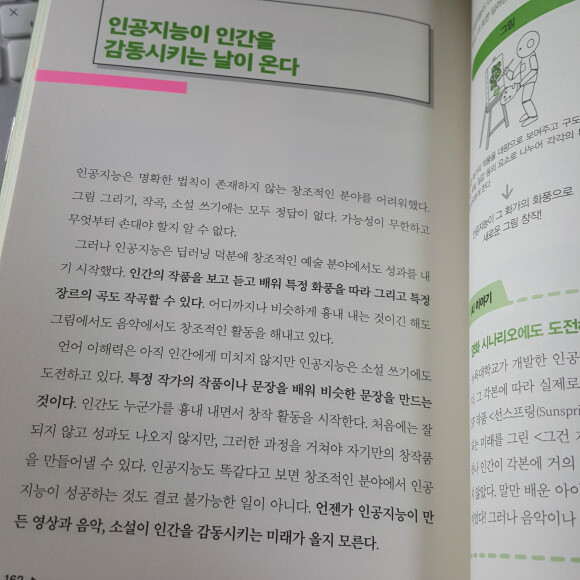 인공지능이 인간을
감동시키는 날이 온다
인공지능은 명확한 법칙이 존재하지 않는 창조적인 분야를 어려워했다.
그림 그리기, 작곡, 소설 쓰기에는 모두 정답이 없다. 가능성이 무한하고
무엇부터 손대야 할지 알 수 없다.
그러나 인공지능은 딥러닝 덕분에 창조적인 예술 분야에서도 성과를 내
기 시작했다. 인간의 작품을 보고 듣고 배워 특정 화풍을 따라 그리고 특정
장르의 곡도 작곡할 수 있다. 어디까지나 비슷하게 흉내 내는 것이긴 해도
그림에서도 음악에서도 창조적인 활동을 해내고 있다.
언어 이해력은 아직 인간에게 미치지 않지만 인공지능은 소설 쓰기에도
도전하고 있다. 특정 작가의 작품이나 문장을 배워 비슷한 문장을 만드는
것이다. 인간도 누군가를 흉내 내면서 창작 활동을 시작한다. 처음에는 잘
되지 않고 성과도 나오지 않지만, 그러한 과정을 거쳐야 자기만의 창작품
을 만들어낼 수 있다. 인공지능도 똑같다고 보면 창조적인 분야에서 인공
지능이 성공하는 것도 결코 불가능한 일이 아니다. 언젠가 인공지능이 만
든 영상과 음악, 소설이 인간을 감동시키는 미래가 올지 모른다.
162
그림
작품을 대량으로 보여주고 구도
등의 요소로 나누어 각각의
인공지능이 그 화가의 화풍으로
새로운 그림 창작!
이야기
영화 시나리오에도 도전
대학교가 개발한 인공
그 각본에 따라 실제로
작품 <선스프링(Sunspri
는 미래를 그린 <그건
나 인간이 각본에 거의
지 않았다. 말만 배운 아이
그러나 음악이나